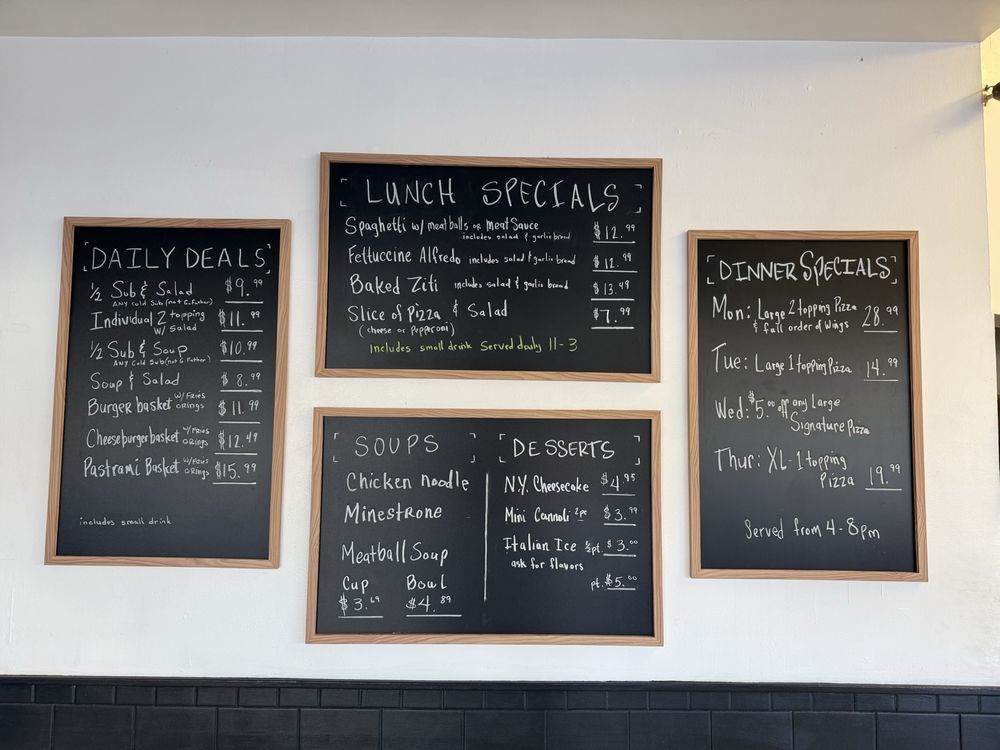 DAILY DEALS
½ Sub & Salad $9.99
ANY Cold Sub (not G.Father)
Individual 2 topping
w/ Salad $11.99
½ Sub & Soup $10.99
ANY Cold Sub (not G.Father)
Soup & Salad $8.99
Burger basket w/ Fries
O Rings $11.99
Cheeseburger basket w/ Fries
O Rings $12.49
Pastrami Basket w/ Fries
O Rings $15.99
includes small drink
LUNCH SPECIALS
Spaghetti w/ meatballs or Meat Sauce $12.99
includes salad & garlic bread
Fettuccine Alfredo includes salad & garlic bread $12.99
Baked Ziti includes salad & garlic bread $13.49
Slice of Pizza & Salad $7.99
(cheese or Pepperoni)
Includes small drink Served daily 11-3
SOUPS
Chicken noodle
Minestrone
Meatball Soup
Cup Bowl
$3.69 $4.89
DESSERTS
N.Y. Cheesecake $4.95
Mini Cannoli 2pc $3.99
Italian Ice ½pt $3.00
ask for flavors
pt. $5.00
DINNER SPECIALS
Mon: Large 2 topping Pizza
& full order of Wings 28.99
Tue: Large 1 topping Pizza 14.99
Wed: $5.00 off any Large
Signature Pizza
Thur: XL-1 topping
Pizza 19.99
Served from 4-8pm